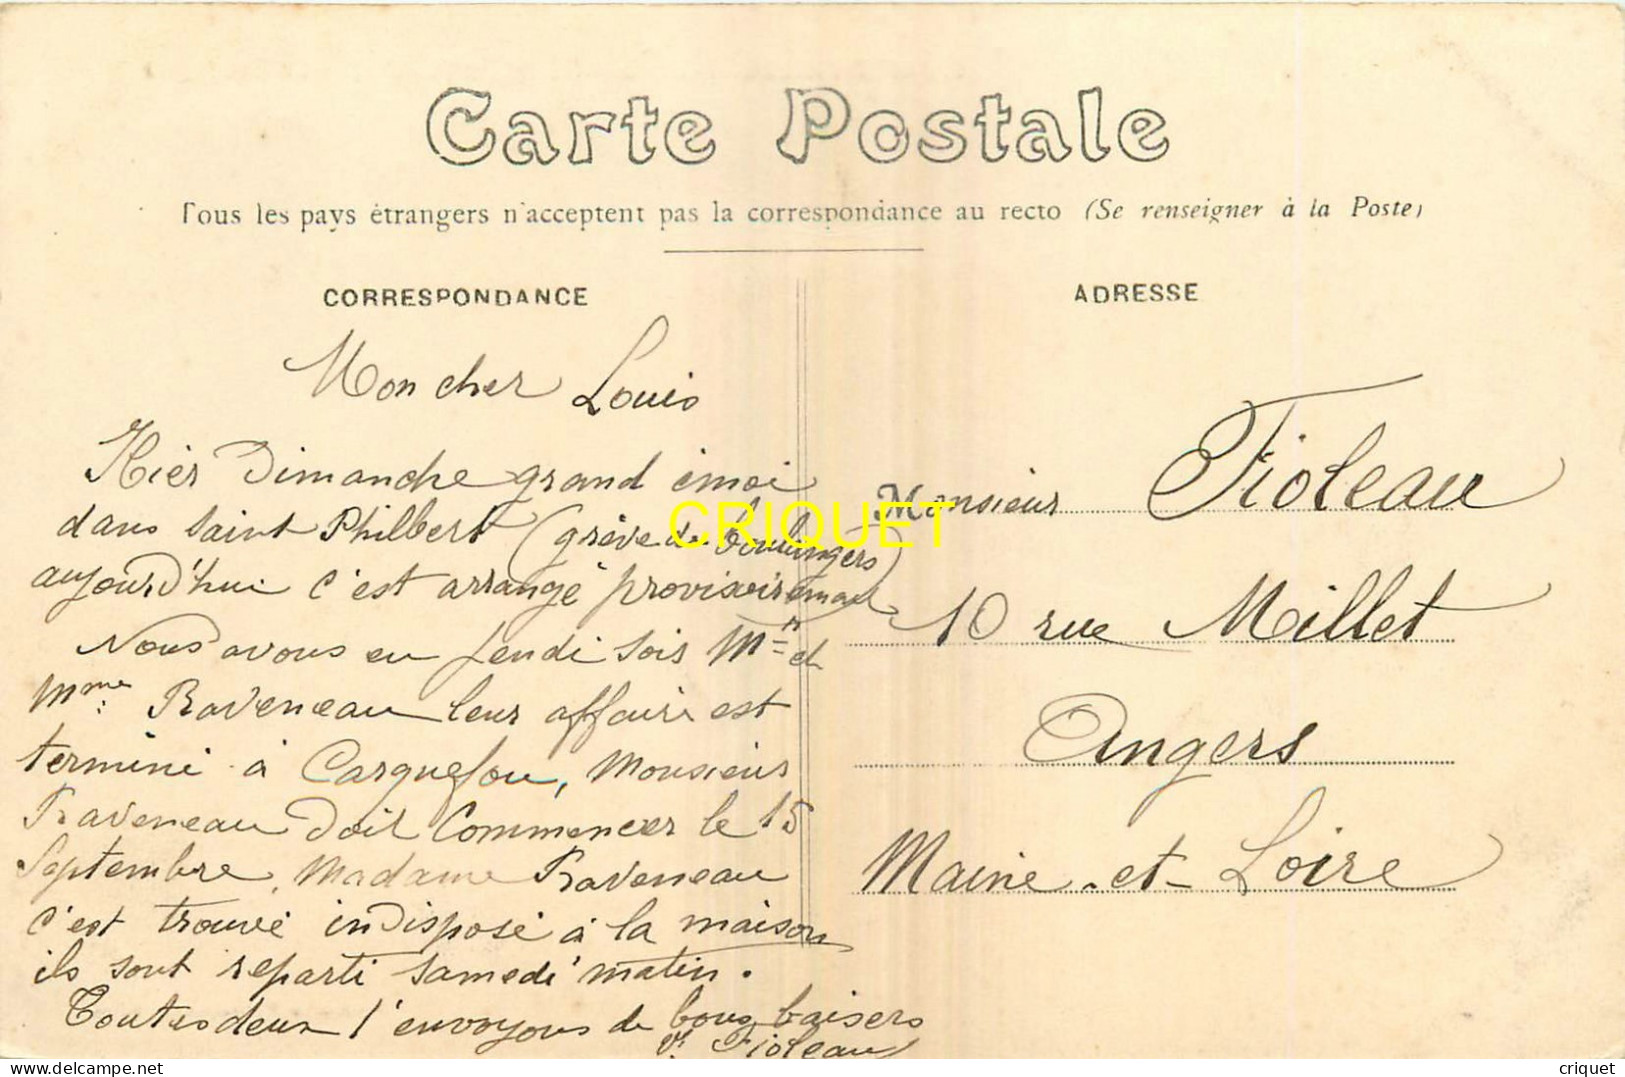 Carte Postale
Tous les pays étrangers n'acceptent pas la correspondance au recto (Se renseigner à la Poste)
CORRESPONDANCE
Mon cher Louis
Hier Dimanche grand émoi
dans Saint Philbert (grève de boulangers)
aujourd'hui c'est arrangé provisoirement
Nous avons eu Jeudi soir Mr et
Mme Raveneau leur affaire est
terminé à Carquefou, Monsieur
Raveneau doit commencer le 15
Septembre, Madame Raveneau
c'est trouvé indisposé à la maison
ils sont reparti samedi matin.
Toutes deux t'envoyons de bons baisers
Vr Fioleau
ADRESSE
Monsieur Fioleau
10 rue Millet
Angers
Maine-et-Loire
CRIQUET
delcampe.net
criquet